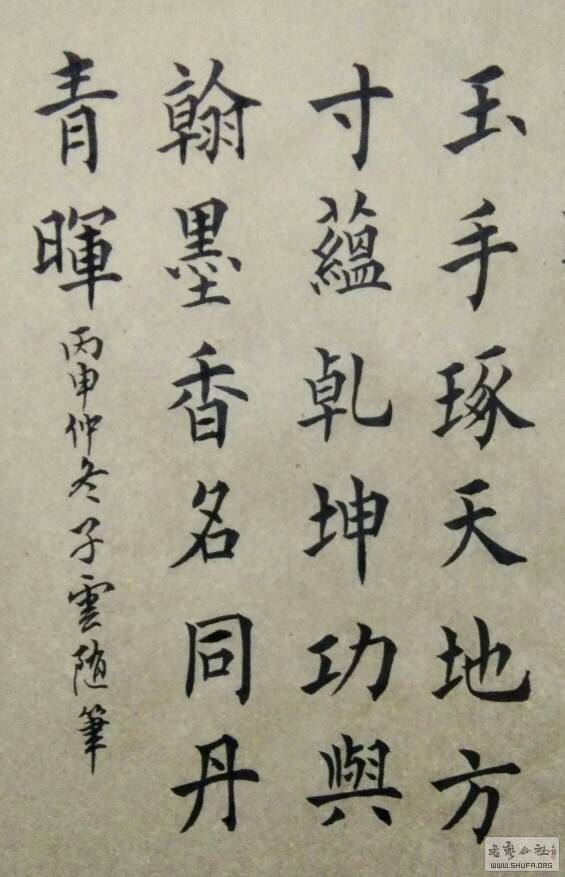 玉手琢天地方
寸蘊乹坤功與
翰墨香名同丹
青暉
丙申仲冬子雲随筆
书艺公社
WWW.SHUFA.ORG